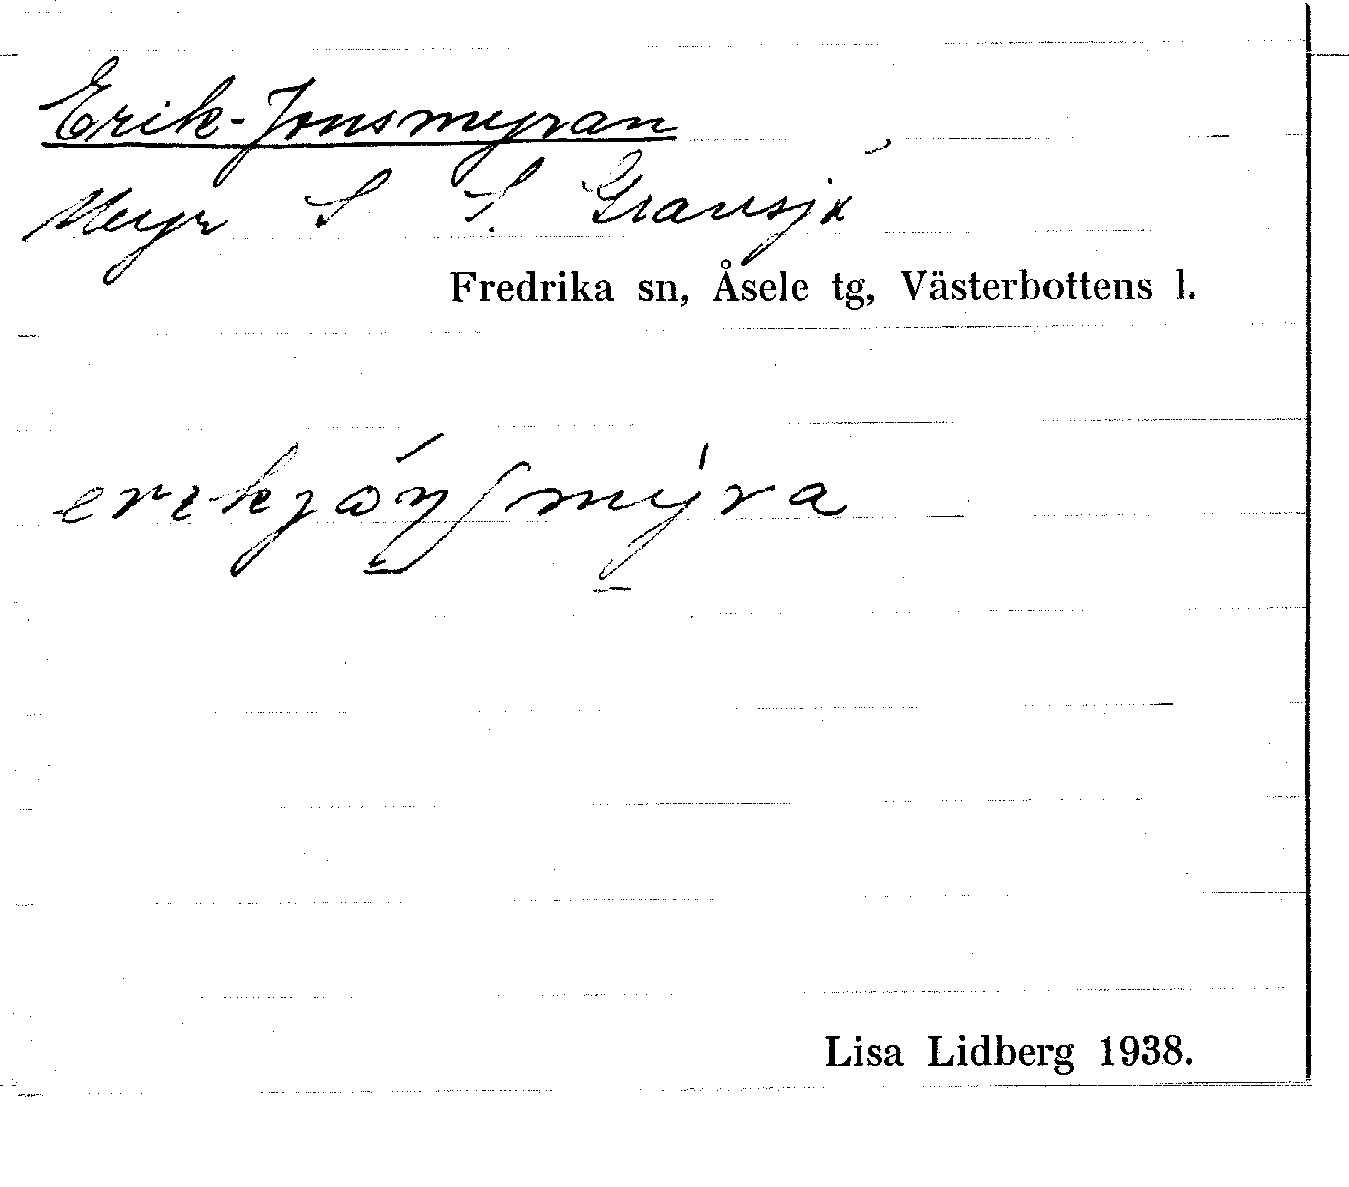 Erik-Jonsmyran
Myr S S. Gransjö
Fredrika sn, Åsele tg, Västerbottens l.
Lisa Lidberg 1938.